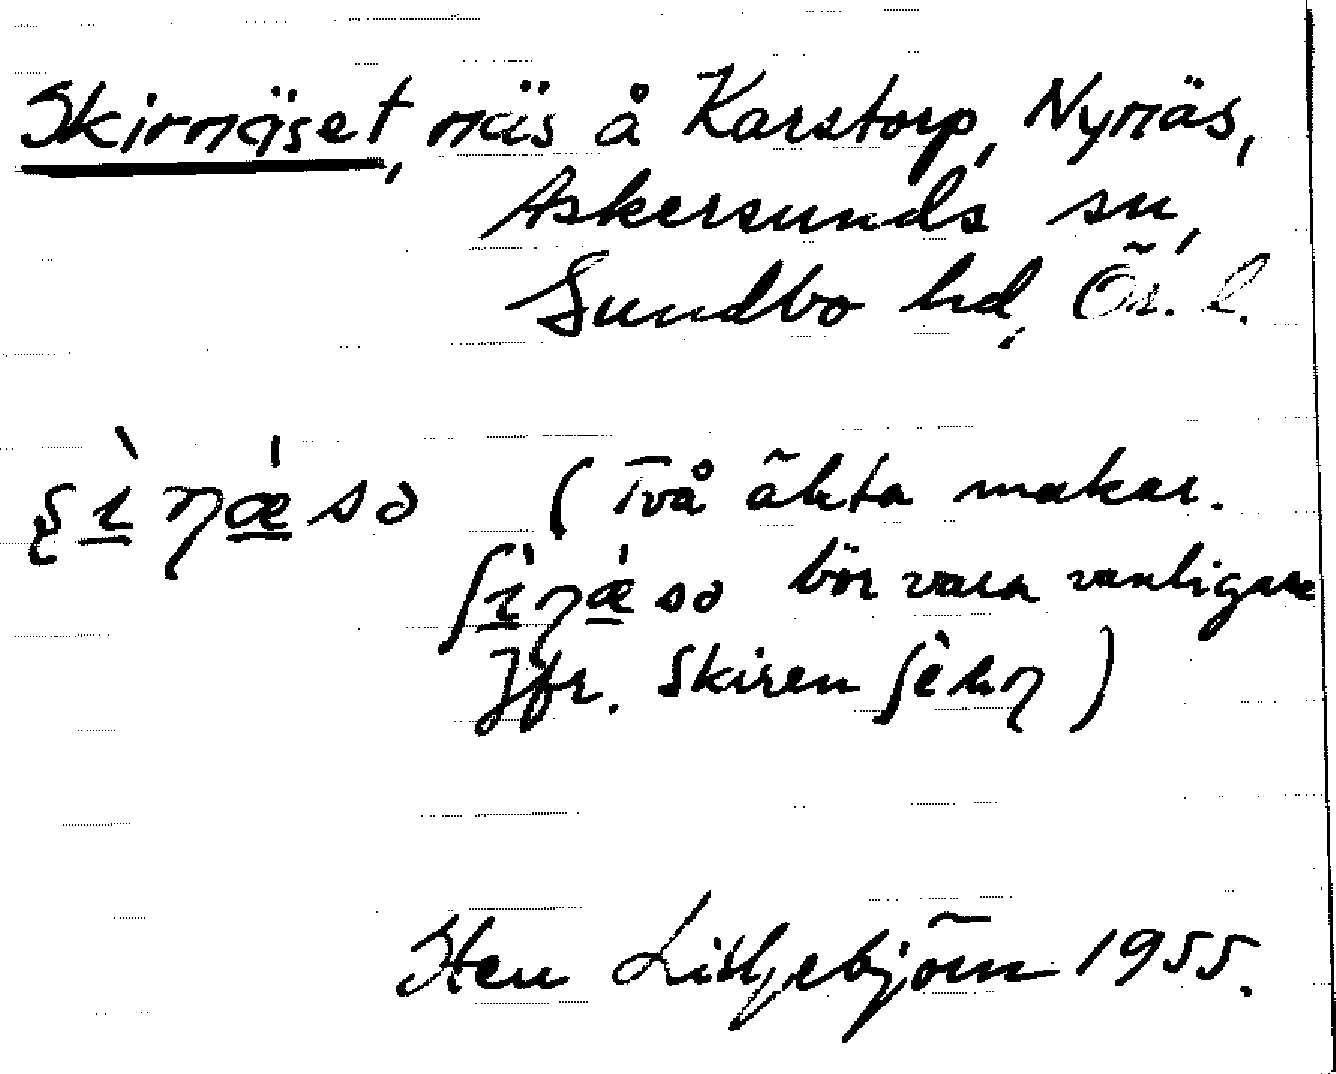 Skirnäset, näs å Karstorp, Nynäs,
Askersunds sn,
Sundbo hd, Ör. l.
(Två äkta makar.
bör vara vanligare
Jfr. Skiren )
Sten Lilljebjörn 1955.